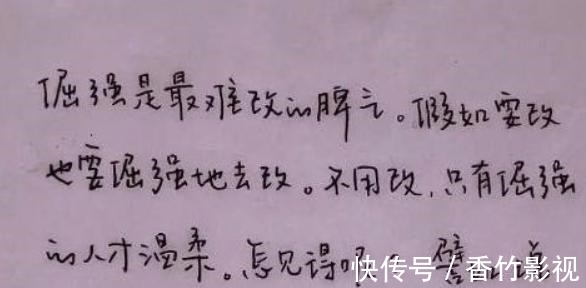 倔强是最难改的脾气。假如要改
也要倔强地去改。不用改，只有倔强
的人才温柔。怎见得呢
快传号 / 香竹影视